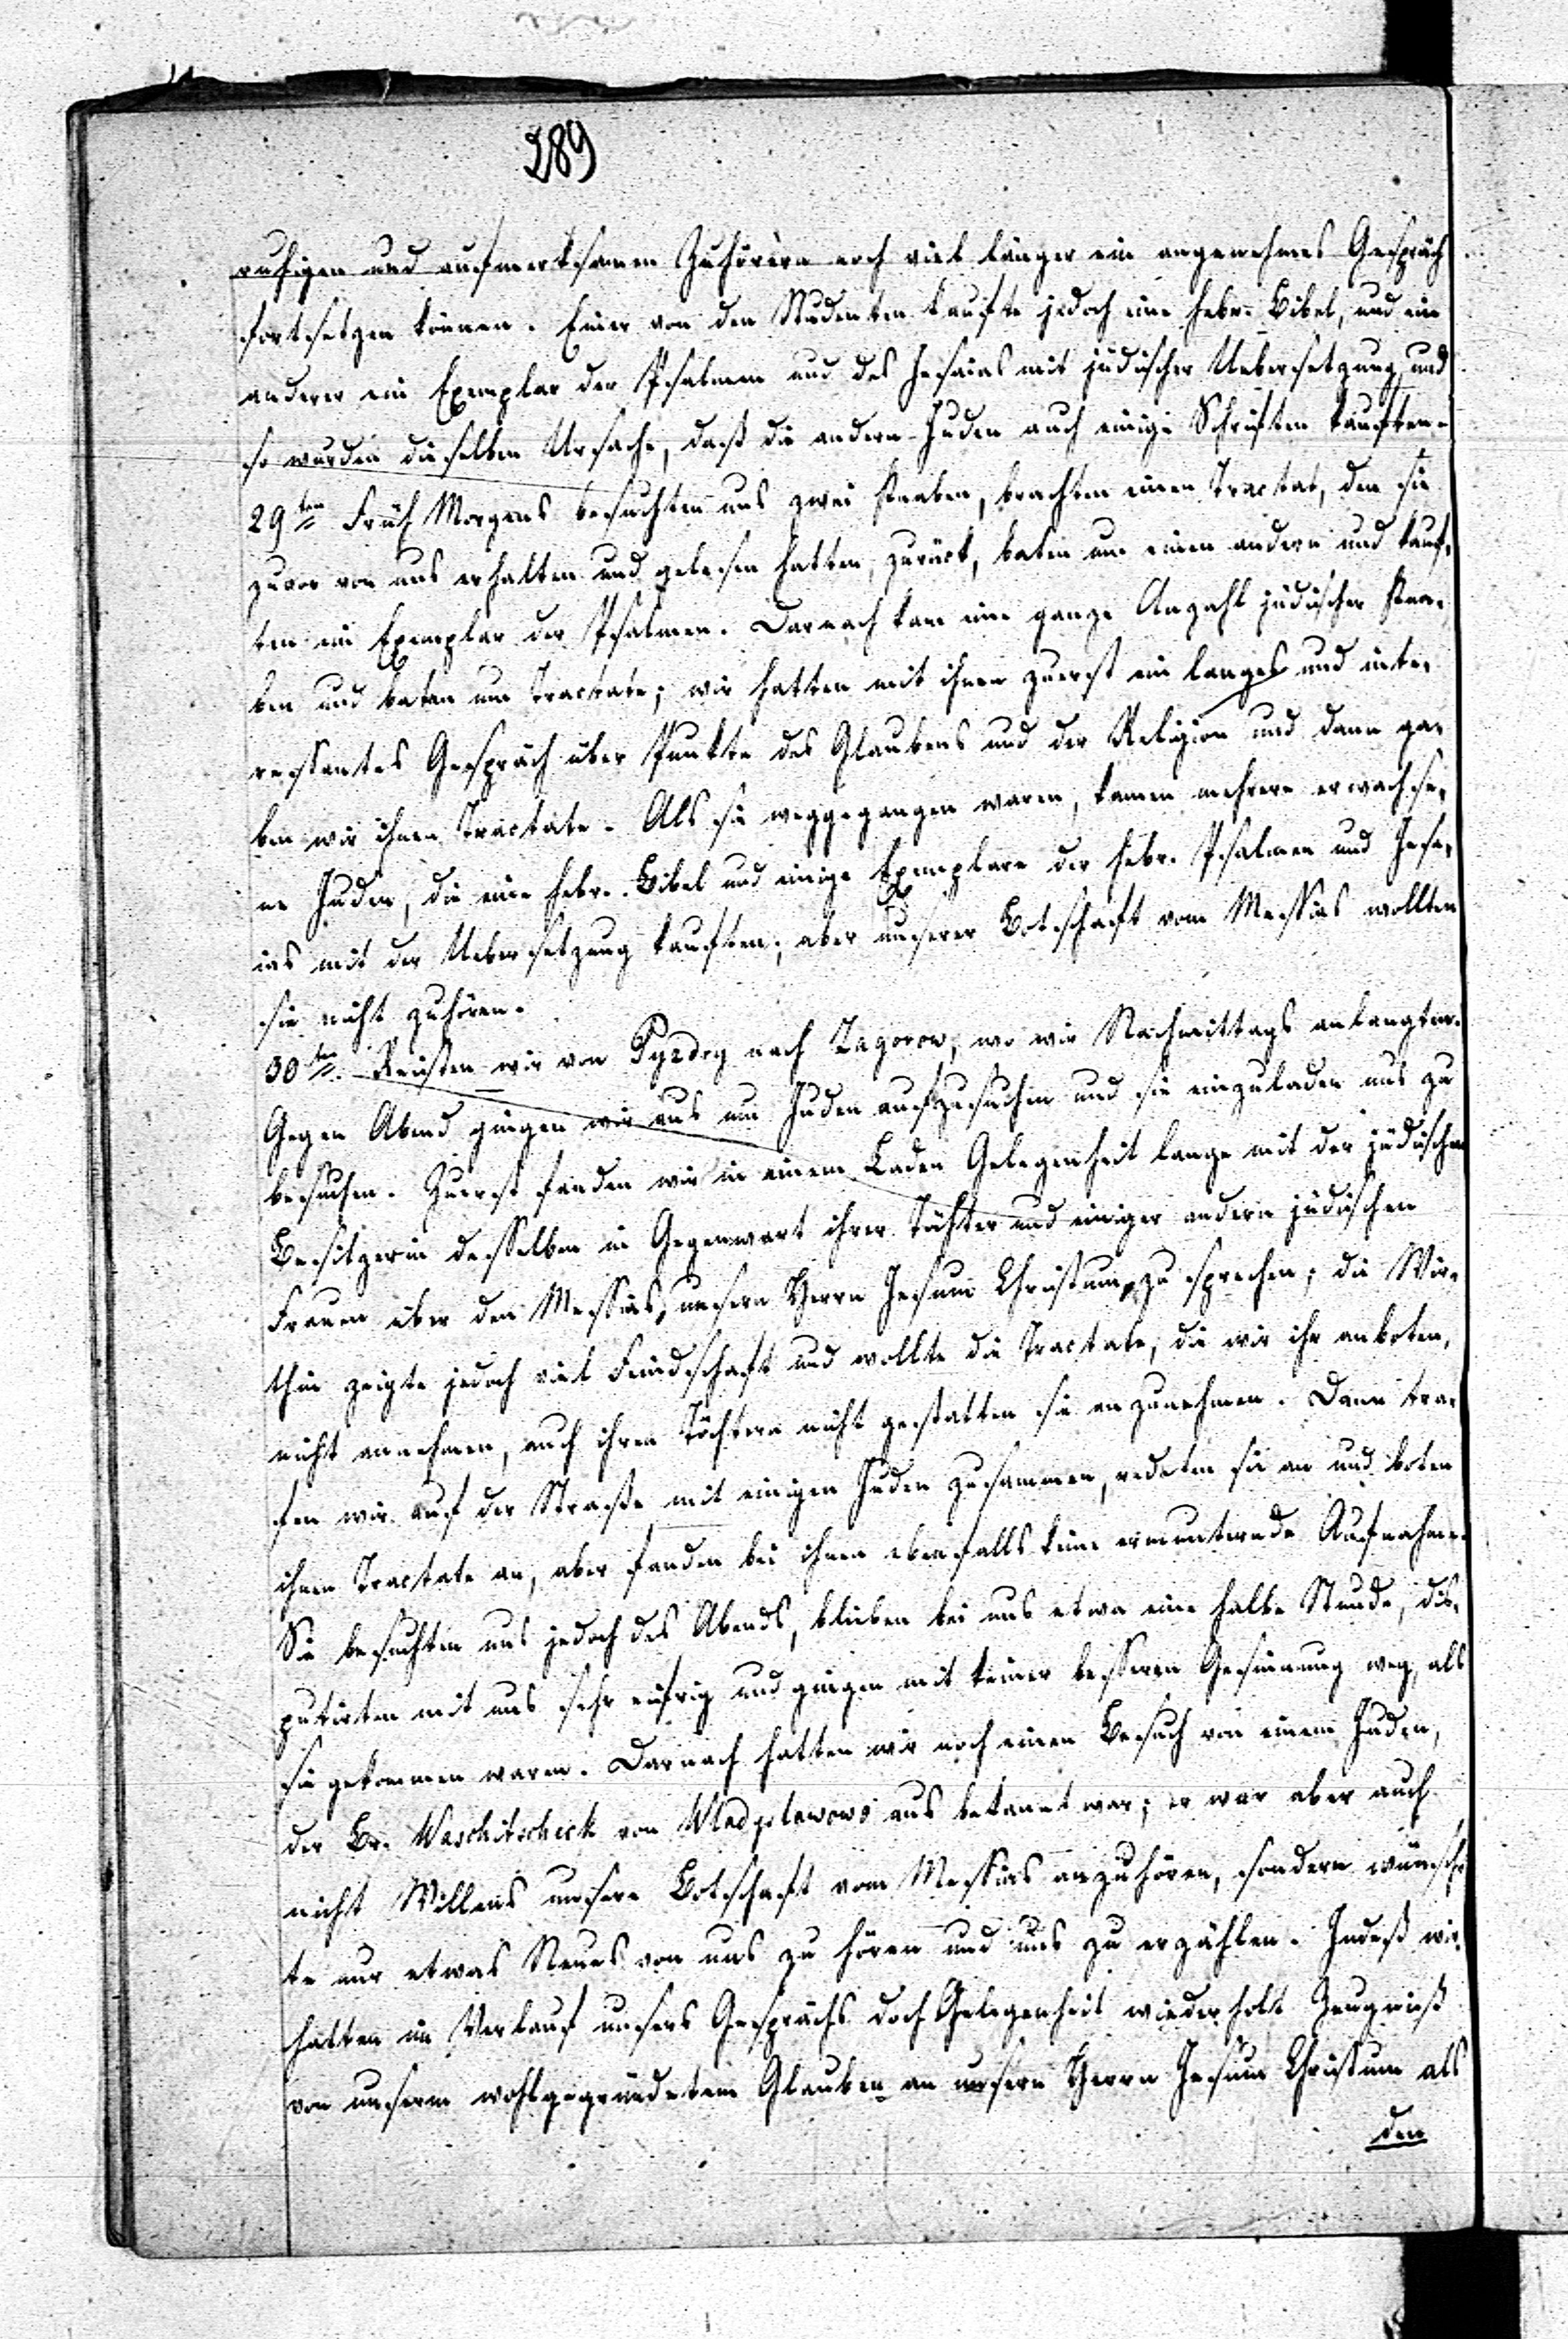 289
ruhigen und aufmerksamen Zuhörern noch viel länger ein angenehmes Gespräch
fortsetzen können. Einer von den Studenten kaufte jedoch eine hebr. Bibel, und ein
anderer ein Exemplar der Psalmen und des Jesaias mit jüdischer Uebersetzung, und
so wurden dieselben Ursache, daß die andern Juden auch einige Schriften kauften.
29ten Früh Morgens besuchten uns zwei Knaben, brachten einen Tractat, den sie
zuvor von uns erhalten und gelesen hatten, zurück, baten um einen andern und kauf-
ten ein Exemplar der Psalmen. Darnach kam eine ganze Anzahl jüdischer Kna-
ben und baten um Tractate; wir hatten mit ihnen zuerst ein langes und inte-
ressantes Gespräch über Punkte des Glaubens und der Religion und dann ga-
ben wir ihnen Tractate. Als sie weggegangen waren, kamen mehrere erwachse-
ne Juden, die eine hebr. Bibel und einige Exemplare der hebr. Psalmen und Jesa-
ias mit der Uebersetzung kauften; aber unserer Botschaft vom Messias wollten
sie nicht zuhören.
30ten Reisten wir von Pyzdry nach Zagorow, wo wir Nachmittags anlangten.
Gegen Abend gingen wir aus um Juden aufzusuchen und sie einzuladen uns zu
besuchen. Zuerst fanden wir in einem Laden Gelegenheit lange mit der jüdischen
Besitzerin desselben in Gegenwart ihrer Töchter und einiger andern jüdischen
Frauen über den Messias, unsern Herrn Jesum Christum, zu sprechen; die Wir-
thin zeigte jedoch viel Feindschaft und wollte die Tractate, die wir ihr anboten,
nicht annehmen, auch ihren Töchtern nicht gestatten sie anzunehmen. Dann tra-
fen wir auf der Straße mit einigen Juden zusammen, redeten sie an und boten
ihnen Tractate an, aber fanden bei ihnen ebenfalls keine ermunternde Aufnahme.
Sie besuchten uns jedoch des Abends, blieben bei uns etwa eine halbe Stunde, dis-
putirten mit uns sehr eifrig und gingen mit keiner besseren Gesinnung weg, als
sie gekommen waren. Darnach hatten wir noch einen Besuch von einem Juden,
der Br. Waschitscheck von Wladyslawowo aus bekannt war; er war aber auch
nicht Willens unsere Botschaft vom Messias anzuhören, sondern wünsch-
te nur etwas Neues von uns zu hören und uns zu erzählen. Indeß wir
hatten im Verlauf unsers Gesprächs doch Gelegenheit wiederholt Zeugniß
von unserm wohlgegründetem Glauben an unsern Herrn Jesum Christum als
den